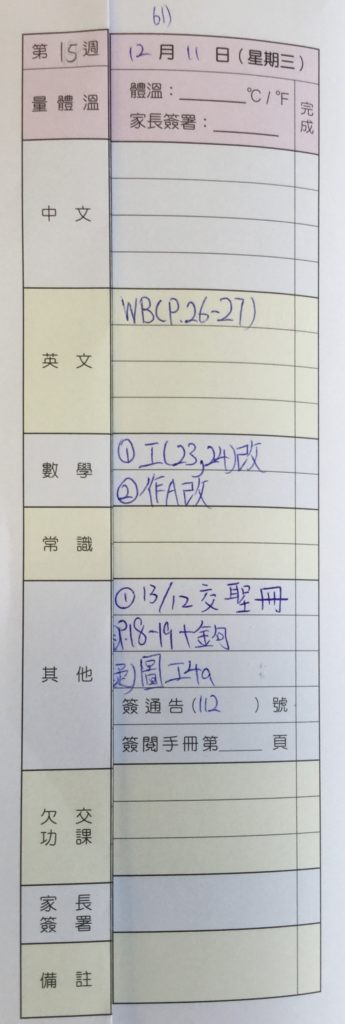 61)
第15週 12月11日(星期三)
量體溫 體溫：______℃/℉ 完成
家長簽署：______
中文
英文 WB(P.26-27)
數學 ①工(23,24)改
②作A改
常識
其他 ①13/12交聖冊
P.18-19+鉤
圖工4a
簽通告(112 )號
簽閱手冊第____頁
欠交功課
家長簽署
備註